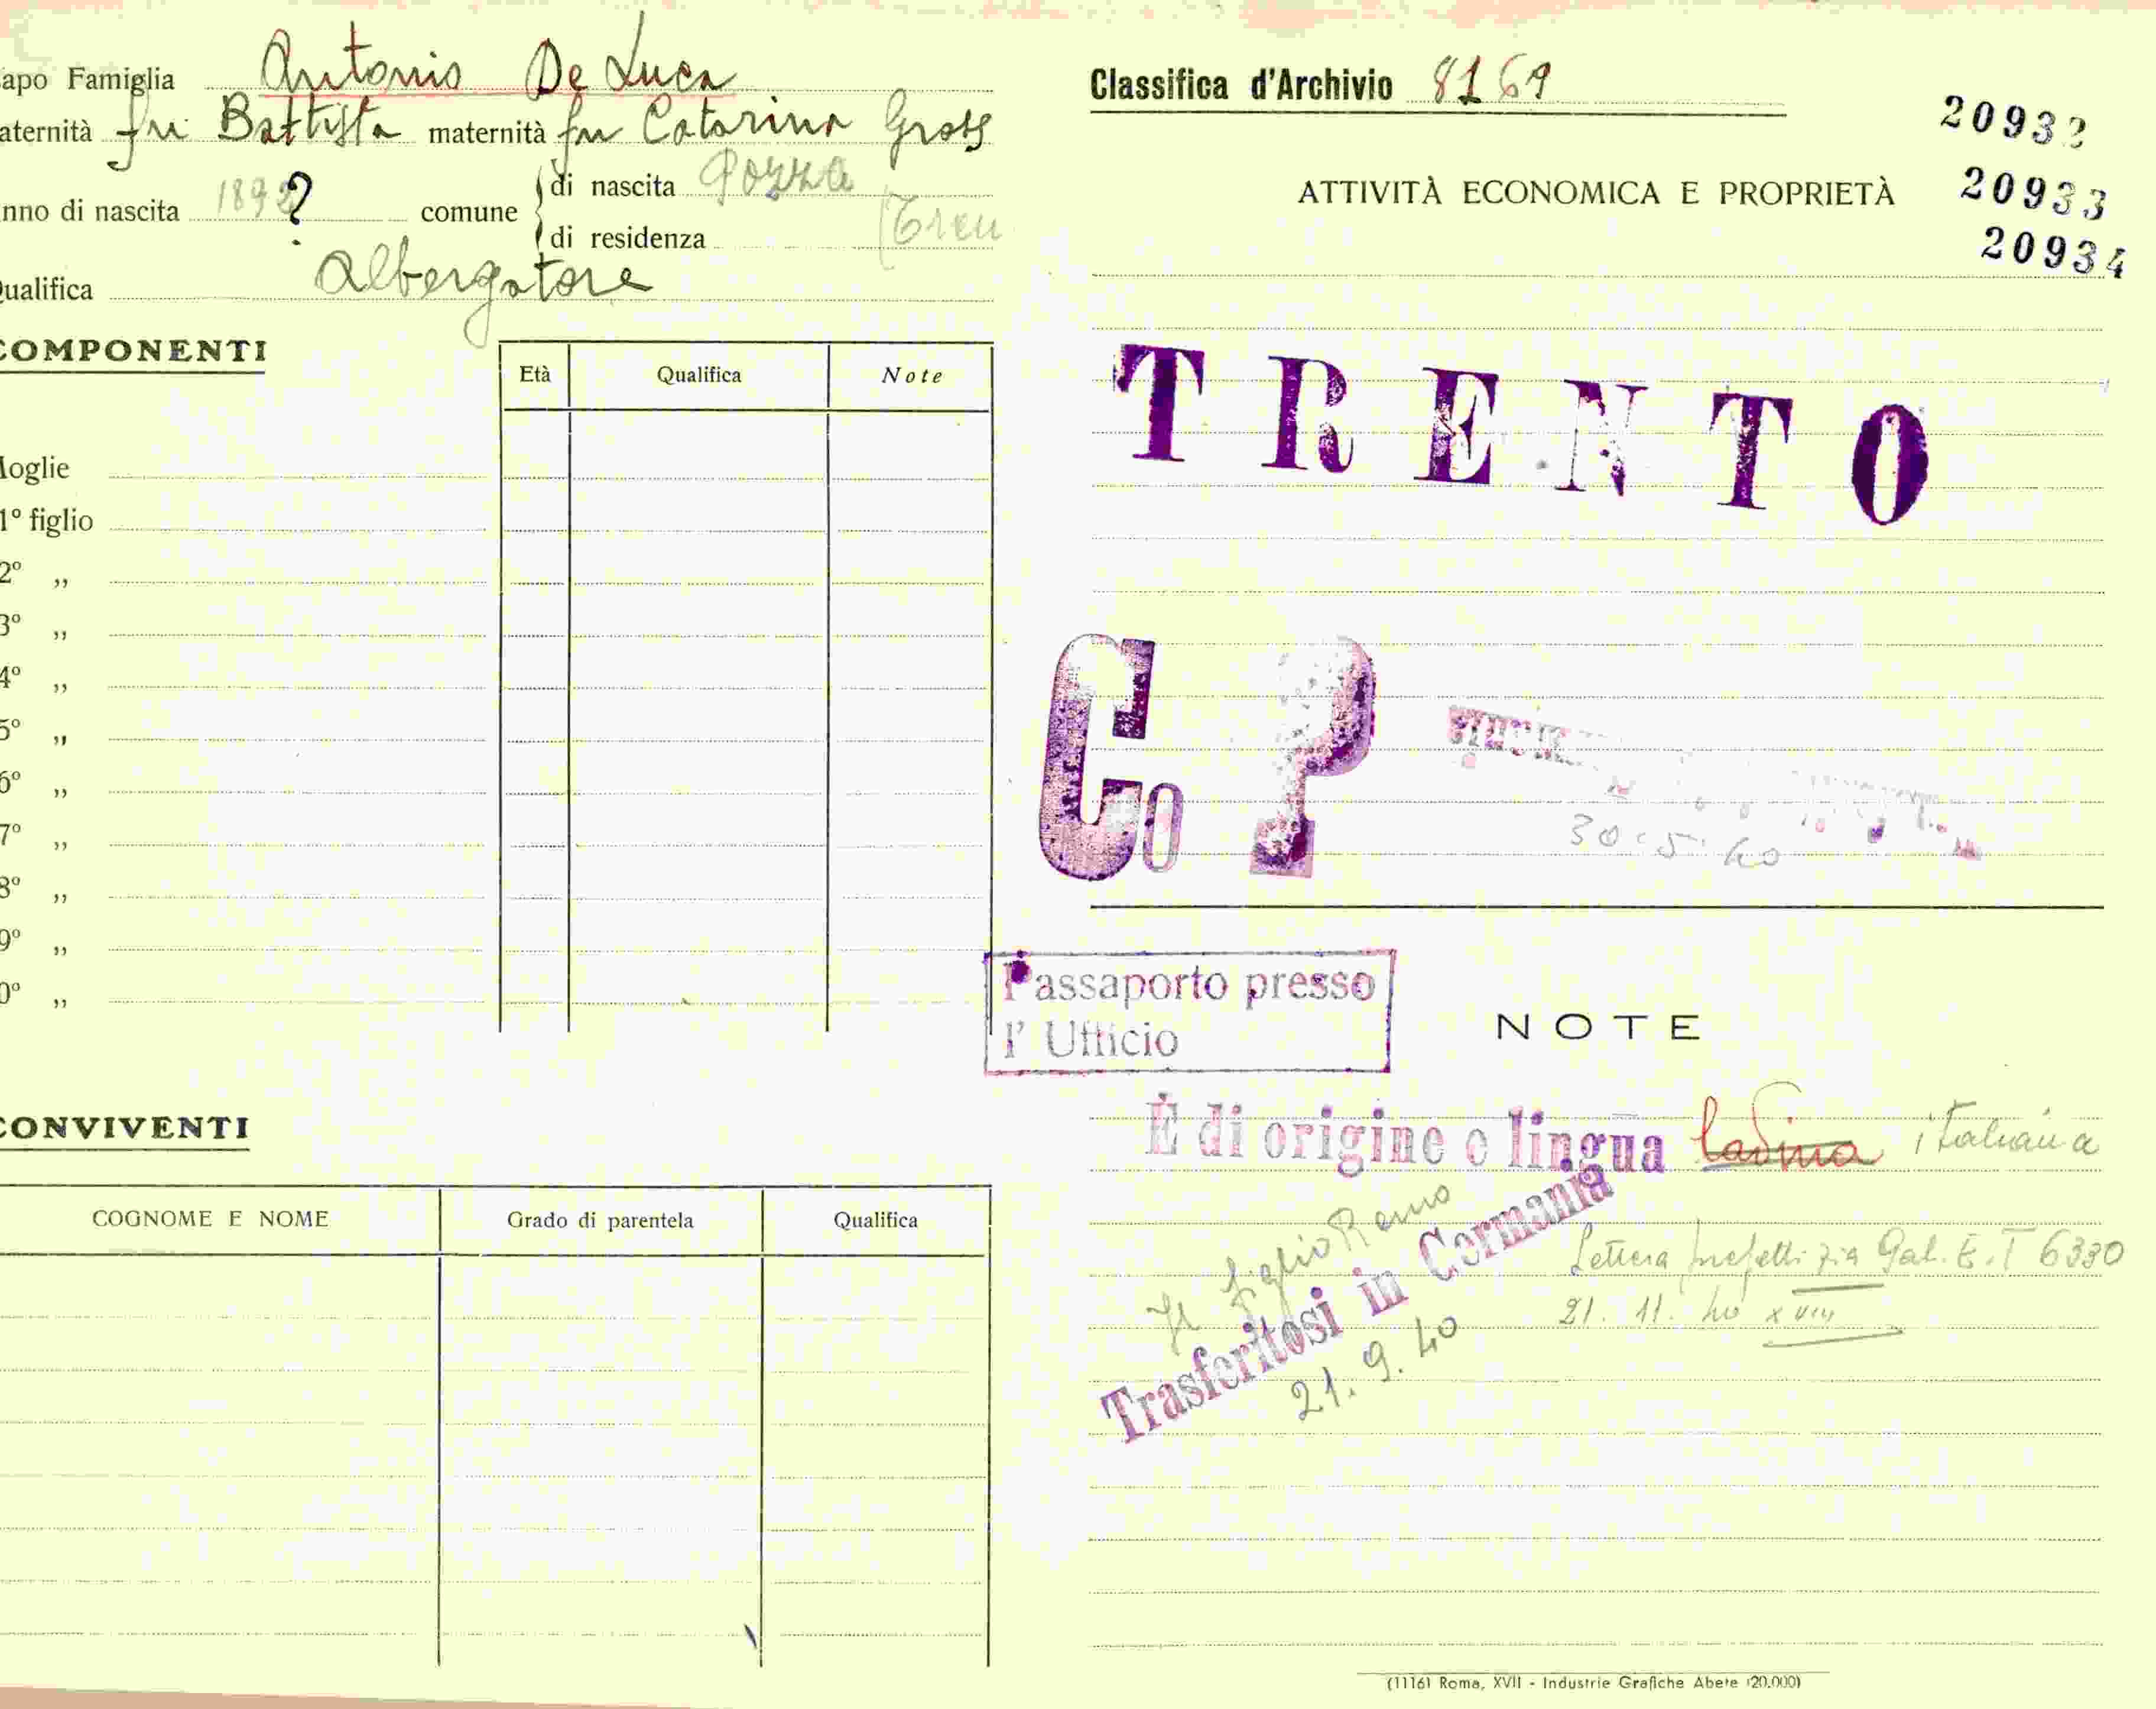 apo Famiglia Antonio De Luca
aternità fu Battista maternità fu Catarina Gross
nno di nascita 189 ? comune di nascita Pozza
di residenza (Tren
ualifica Albergatore
COMPONENTI
Età Qualifica Note
Moglie
1° figlio
2° ,,
3° ,,
4° ,,
5° ,,
6° ,,
7° ,,
8° ,,
9° ,,
0° ,,
CONVIVENTI
COGNOME E NOME Grado di parentela Qualifica
Classifica d'Archivio 8169
20932
20933
20934
ATTIVITÀ ECONOMICA E PROPRIETÀ
TRENTO
Co P
30.5.40
Passaporto presso
l' Ufficio
NOTE
È di origine e lingua ladina italiana
Il figlio Remo
Trasferitosi in Germania
21.9.40
Lettera prefettizia Gab. E.T 6330
21.11.40 XVIII
(1116) Roma, XVII - Industrie Grafiche Abete (20.000)